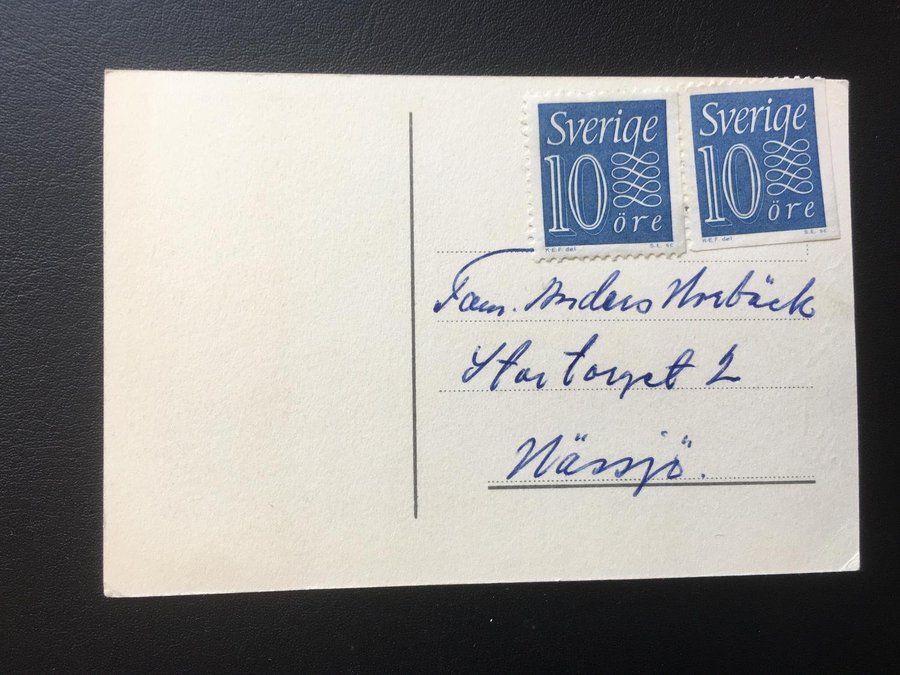 Sverige
10
öre
K.E.F. del
S.E. sc
Sverige
10
öre
K.E.F. del
S.E. sc
Fam. Anders Hrebäck
Stortorget 2
Nässjö.